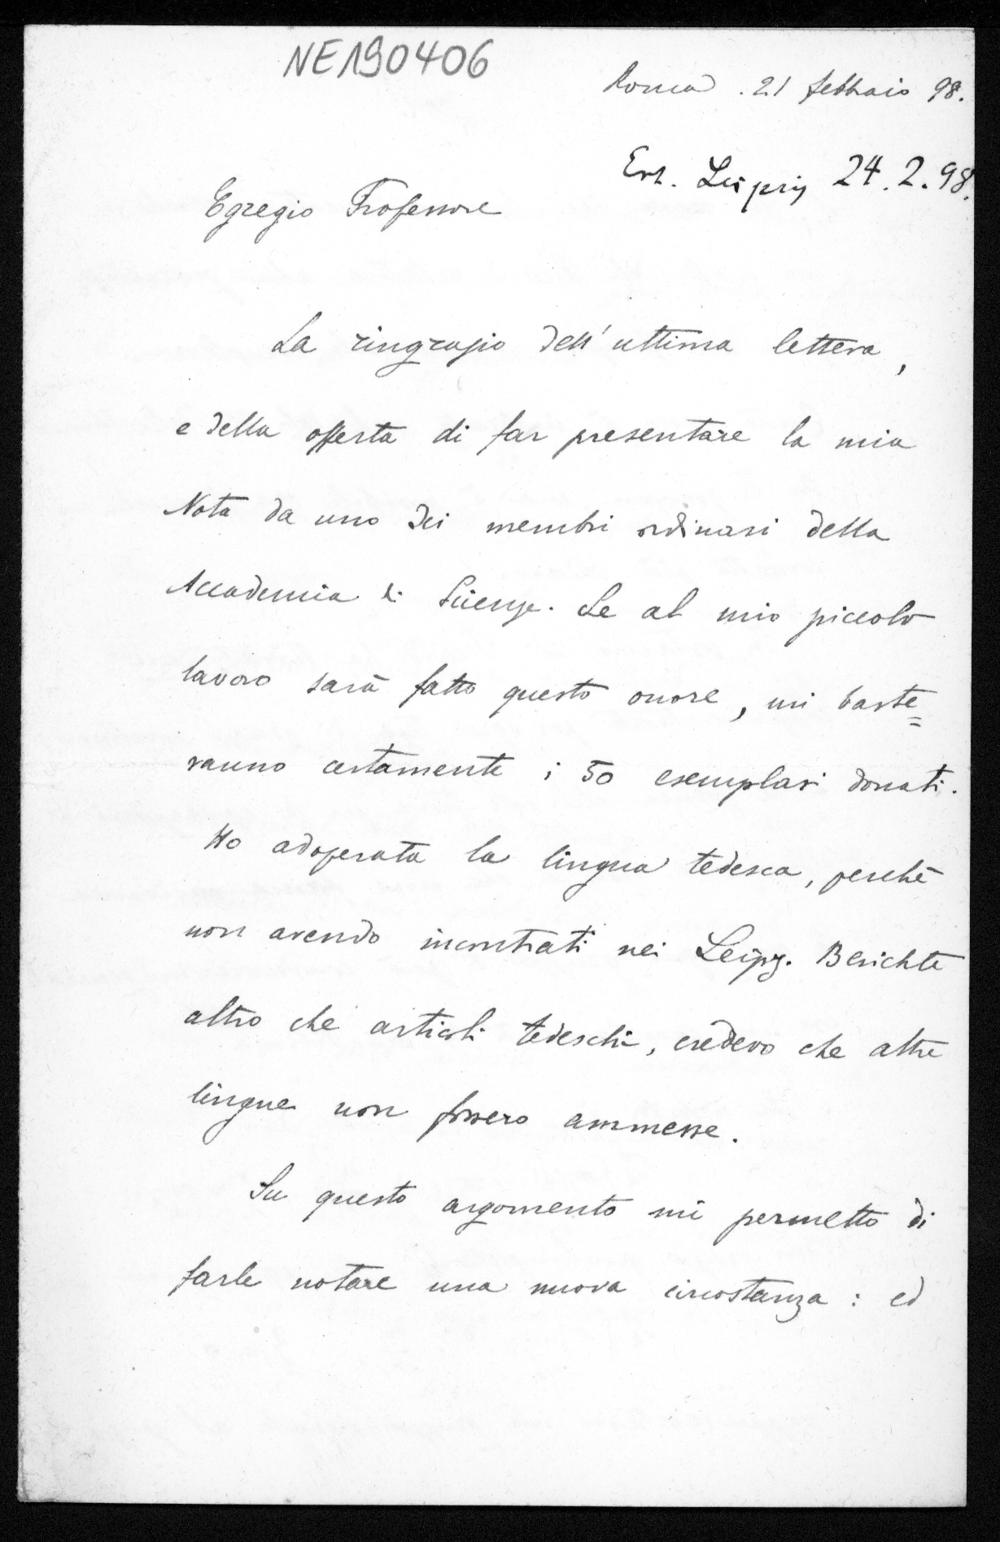 NE190406
Roma . 21 febbraio 98.
Erh. Leipzig 24.2.98.
Egregio Professore
La ringrazio dell'ultima lettera,
e della offerta di far presentare la mia
Nota da uno dei membri ordinari della
Accademia di Scienze. Se al mio piccolo
lavoro sarà fatto questo onore, mi baste=
ranno certamente i 50 esemplari donati.
Ho adoperata la lingua tedesca, perchè
non avendo incontrati nei Leipz. Berichte
altro che articoli tedeschi, credevo che altre
lingue non fossero ammesse.
Su questo argomento mi permetto di
farle notare una nuova circostanza : ed